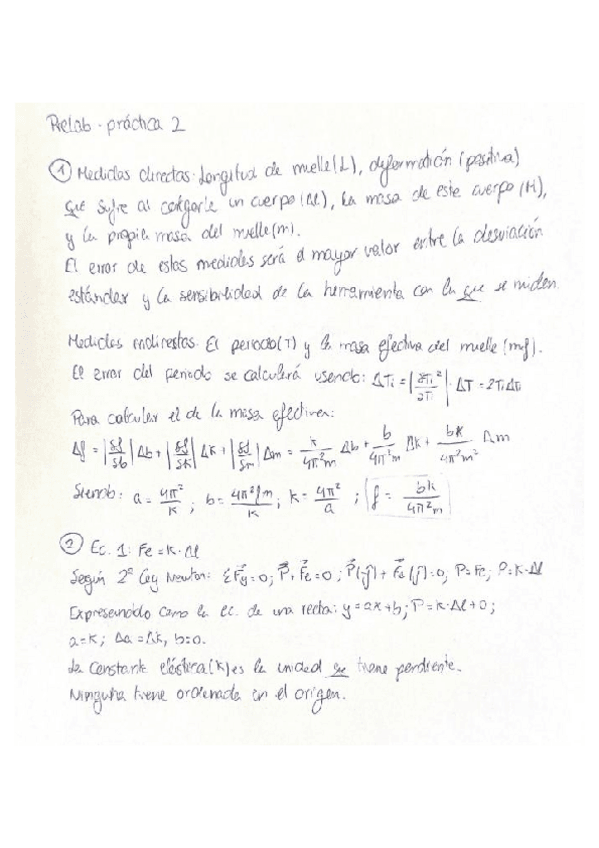 Prelab - práctica 2
① Medidas directas: Longitud de muelle (L), deformación (positiva)
que sufre al colgarle un cuerpo (Δl), la masa de este cuerpo (M),
y la propia masa del muelle (m).
El error de estas medidas será el mayor valor entre la desviación
estándar y la sensibilidad de la herramienta con la que se miden.
Medidas indirectas: El periodo (T) y la masa efectiva del muelle (mf).
El error del periodo se calculará usando: ΔTi = |∂Ti²/∂Ti| · ΔT = 2TiΔTi
Para calcular el de la masa efectiva:
Δf = |δf/δb| Δb + |δf/δk| Δk + |δf/δm| Δm = k/4π²m Δb + b/4π²m Δk + bk/4π²m² Δm
Siendo: a = 4π²/k ; b = 4π²fm/k ; k = 4π²/a ; f = bk/4π²m
② Ec. 1: Fe = k · Δl
Según 2ª Ley Newton: ΣFy = 0; P + Fe = 0; P(-j) + Fe(j) = 0; P = Fe; P = k · Δl
Expresándolo como la ec. de una recta: y = ax + b; P = k · Δl + 0;
a = k; Δa = Δk, b = 0.
La constante elástica (k) es la unidad que tiene pendiente.
Ninguna tiene ordenada en el origen.